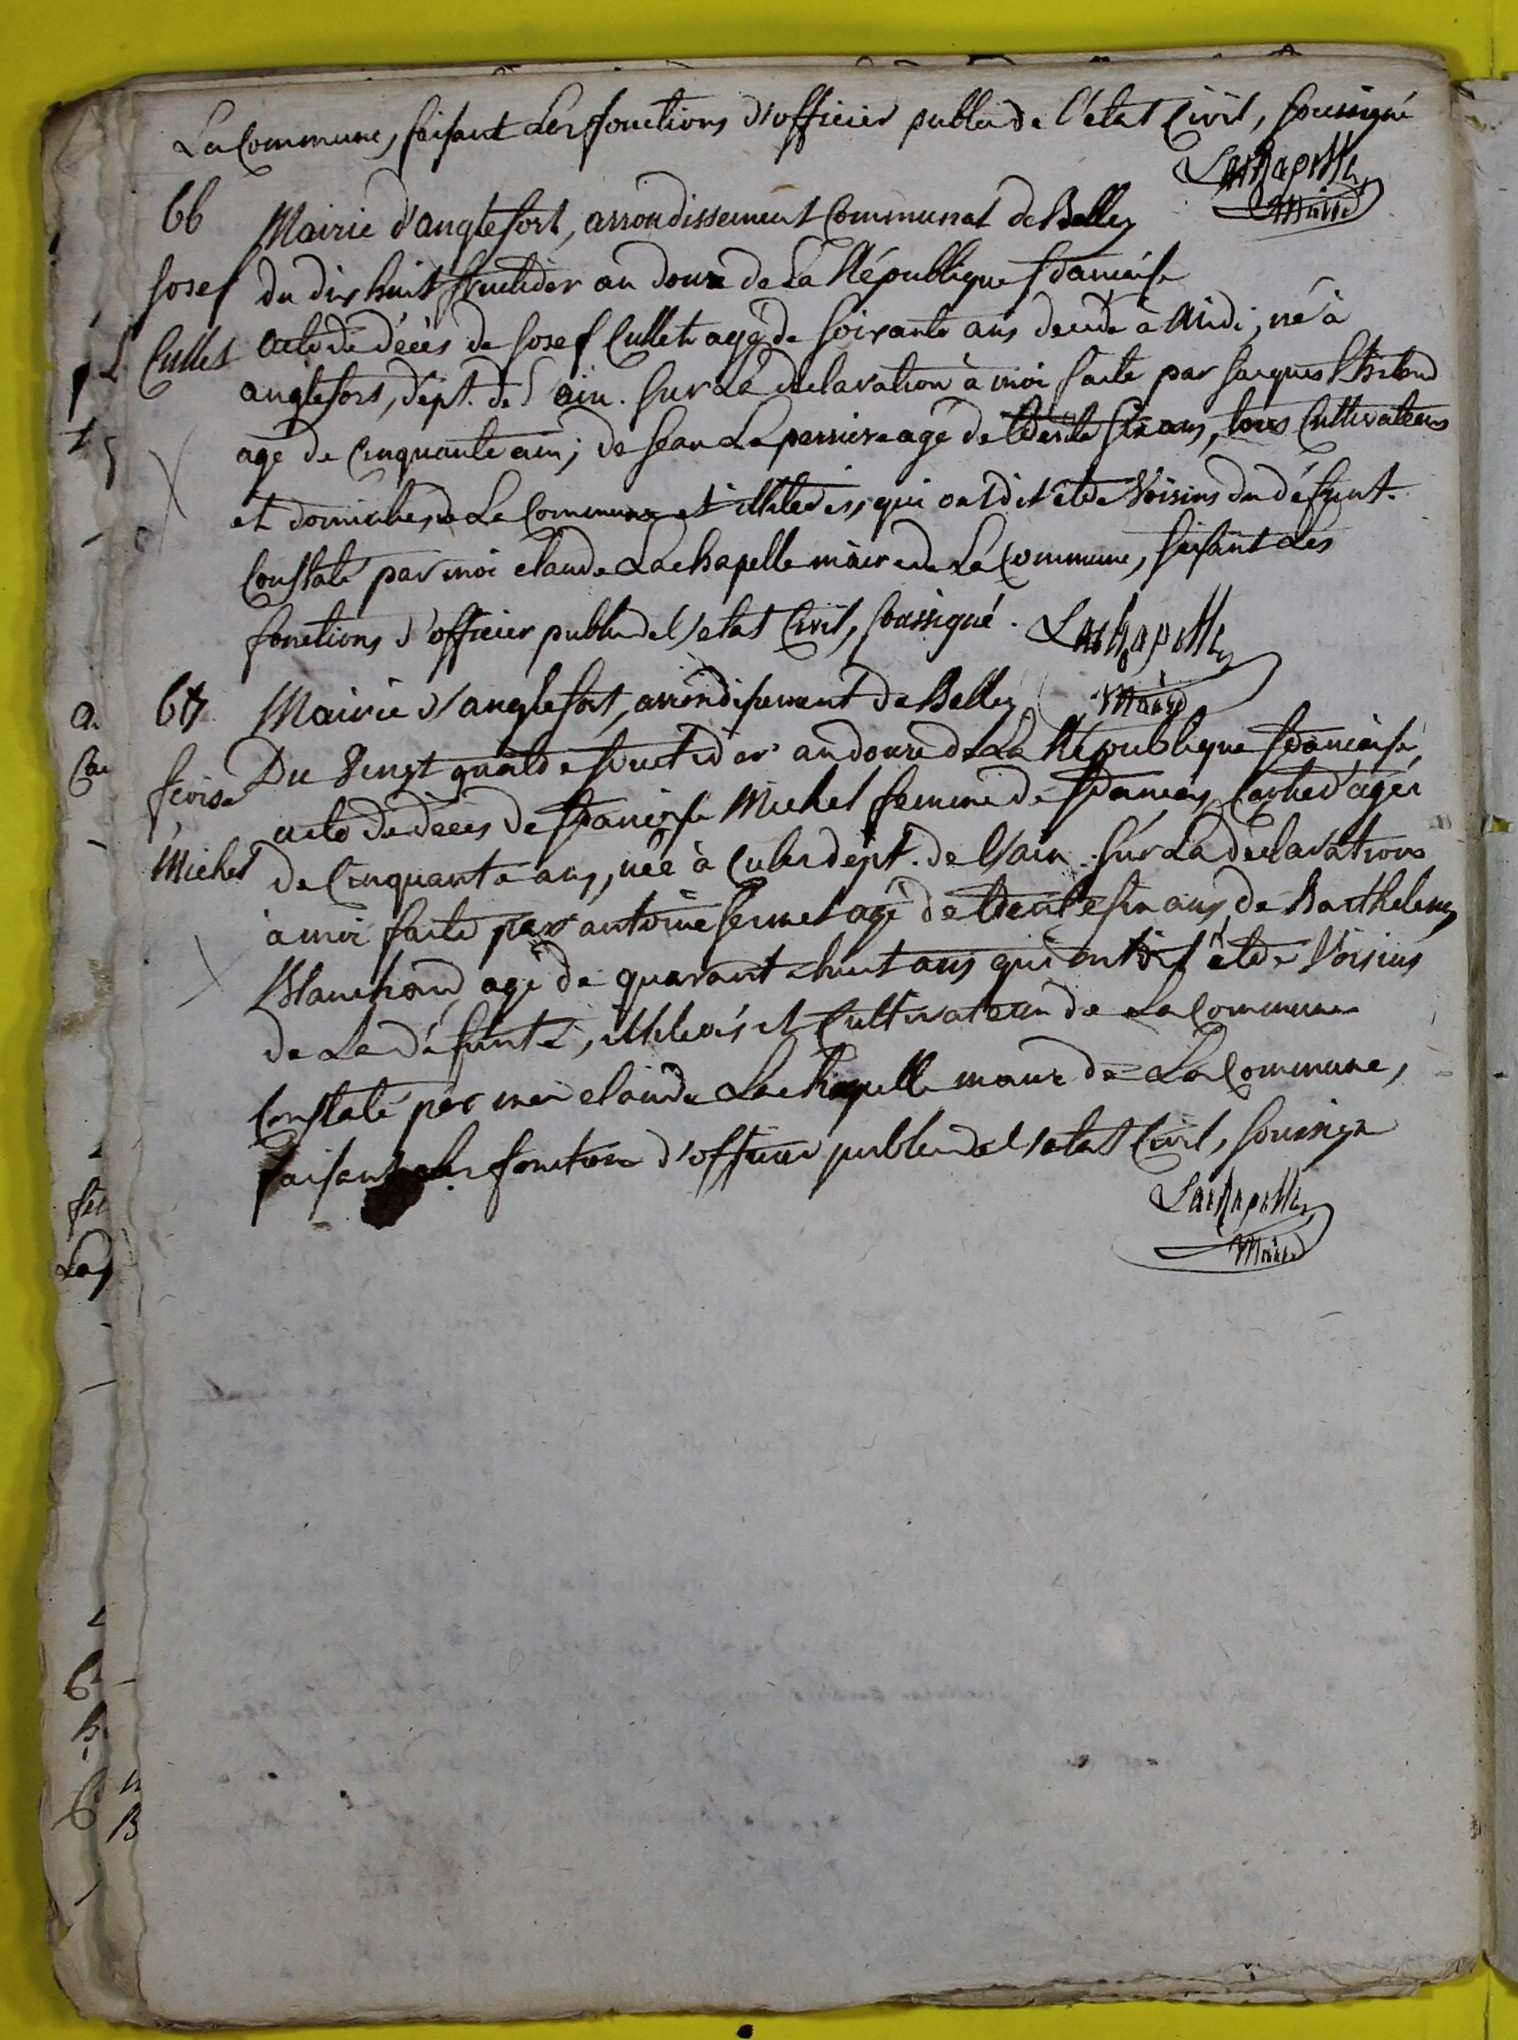 La Commune, faisant Les fonctions d'officier public de l'etat Civil, soussigné
Lachapelle
Maire
66 Mairie d'anglefort, arrondissement Communal de Belley
Josef du dix huit fructidor an douze de La République francaise
Cullet acte de décès de Josef Cullet agé de soixante ans decédé à Midi, né à
anglefort, dépt. de l'ain. sur La déclaration à moi faite par Jacques
agé de cinquante ans; de Jean La perriere agé de trente six ans, tous Cultivateurs
et domiciliés de La Commune et illiterés, qui ont dit être Voisins du défunt.
Constaté par moi claude Lachapelle maire de La Commune, faisant Les
fonctions d'officier public de l'etat Civil, soussigné. Lachapelle
Maire
67 Mairie d'anglefort, arrondissement de Belley
Du Vingt quatre fructidor an douze de La République francaise,
acte de décès de francoise Michel femme de francois agée
Michel de Cinquante ans, née à Culoz dépt. de l'ain. sur La déclaration
à moi faite par antoine agé de trente six ans, de Barthelemy
Blanchard agé de quarante huit ans qui ont dit être Voisins
de La défunte, illiterés et Cultivateurs de La Commune
Constaté par moi claude Lachapelle maire de La Commune,
faisant Les fonctions d'officier public de l'etat Civil, soussigné
Lachapelle
Maire